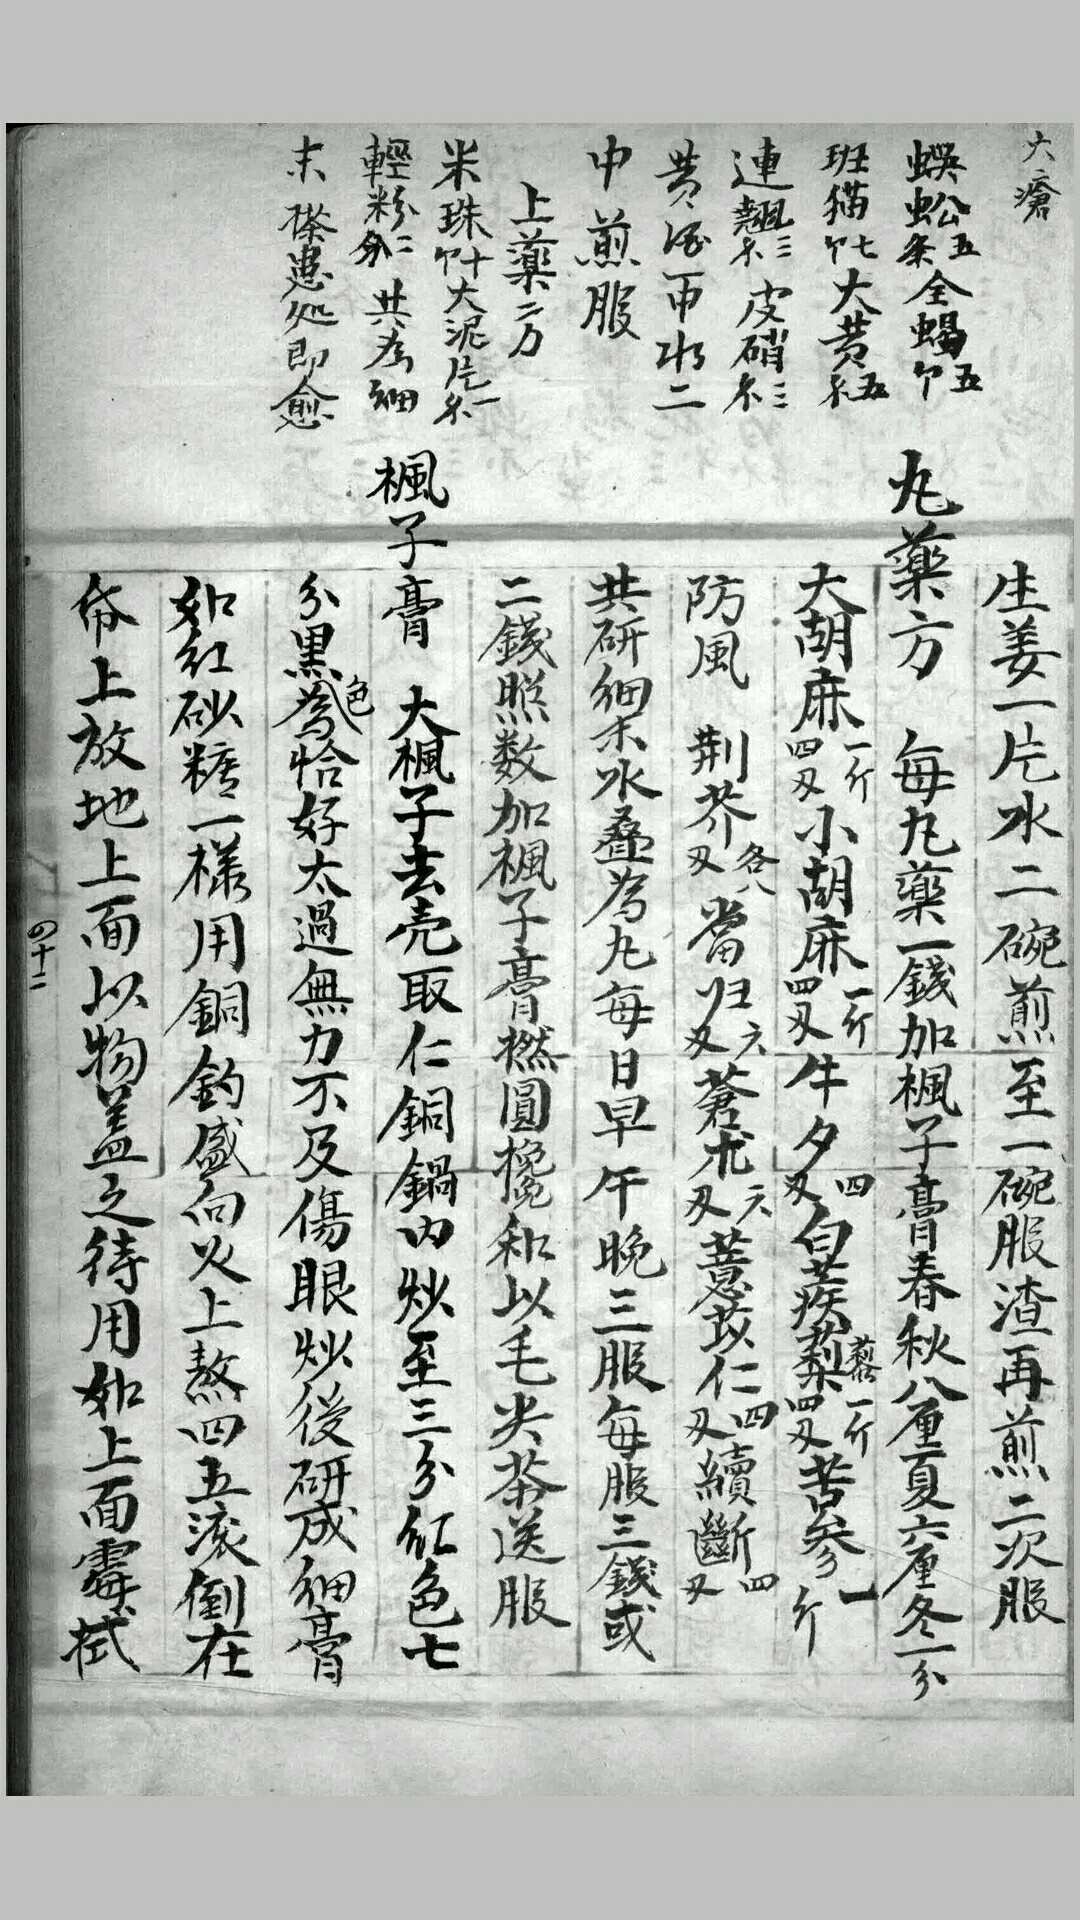 大瘡
蜈蚣五条全蝎五个
班猫七个大黄五
連翹三皮硝三
黄酒一中水二
中煎服
上藥二方
米珠十个大泥片一
輕粉二分共為細
末搽患処即愈
生姜一片水二碗煎至一碗服渣再煎二次服
丸藥方 每丸藥一錢加楓子膏春秋八厘夏六厘冬一分
大胡麻一斤四刄小胡麻一斤四刄牛夕四刄白蒺藜一斤四刄苦參一斤
防風 荆芥各八刄當归六刄蒼朮六刄薏苡仁四刄續斷四刄
共研細末水叠為丸每日早午晚三服每服三錢或
二錢照数加楓子膏撚圓攙和以毛尖茶送服
楓子膏 大楓子去壳取仁銅鍋内炒至三分红色七
分黑色為恰好太過無力不及傷眼炒後研成細膏
如红砂糖一樣用銅鈞盛向火上熬四五滚倒在
帋上放地上面以物盖之待用如上面霉拭
四十二